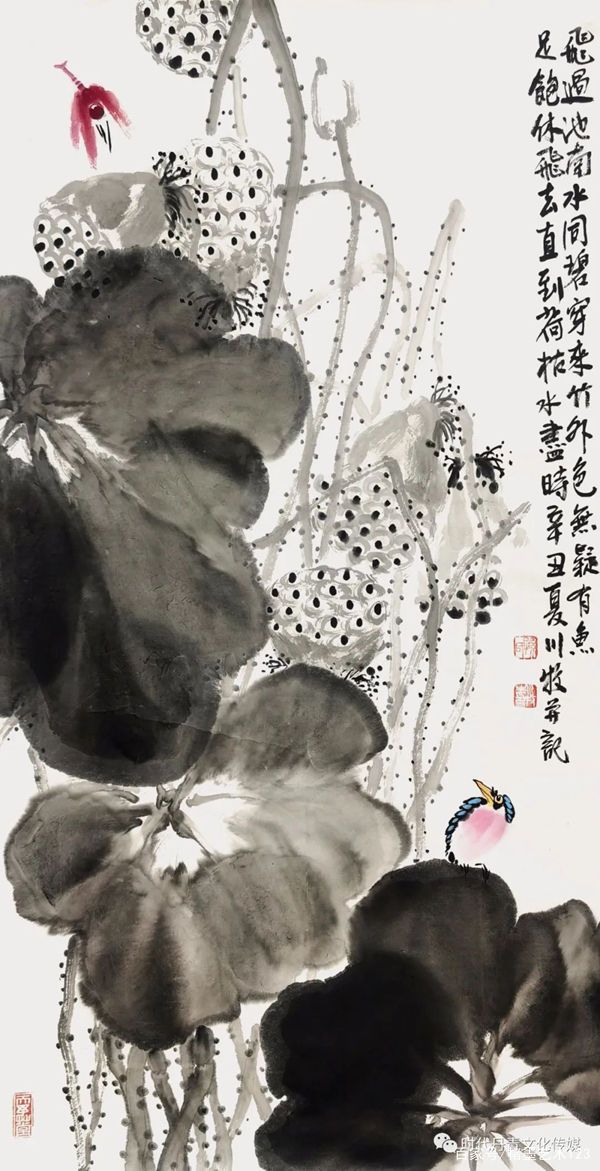 飛過池南水同碧穿來竹外色無疑有魚
足飽休飛去直到荷枯水盡時辛丑夏川牧并記
时代丹青文化传媒